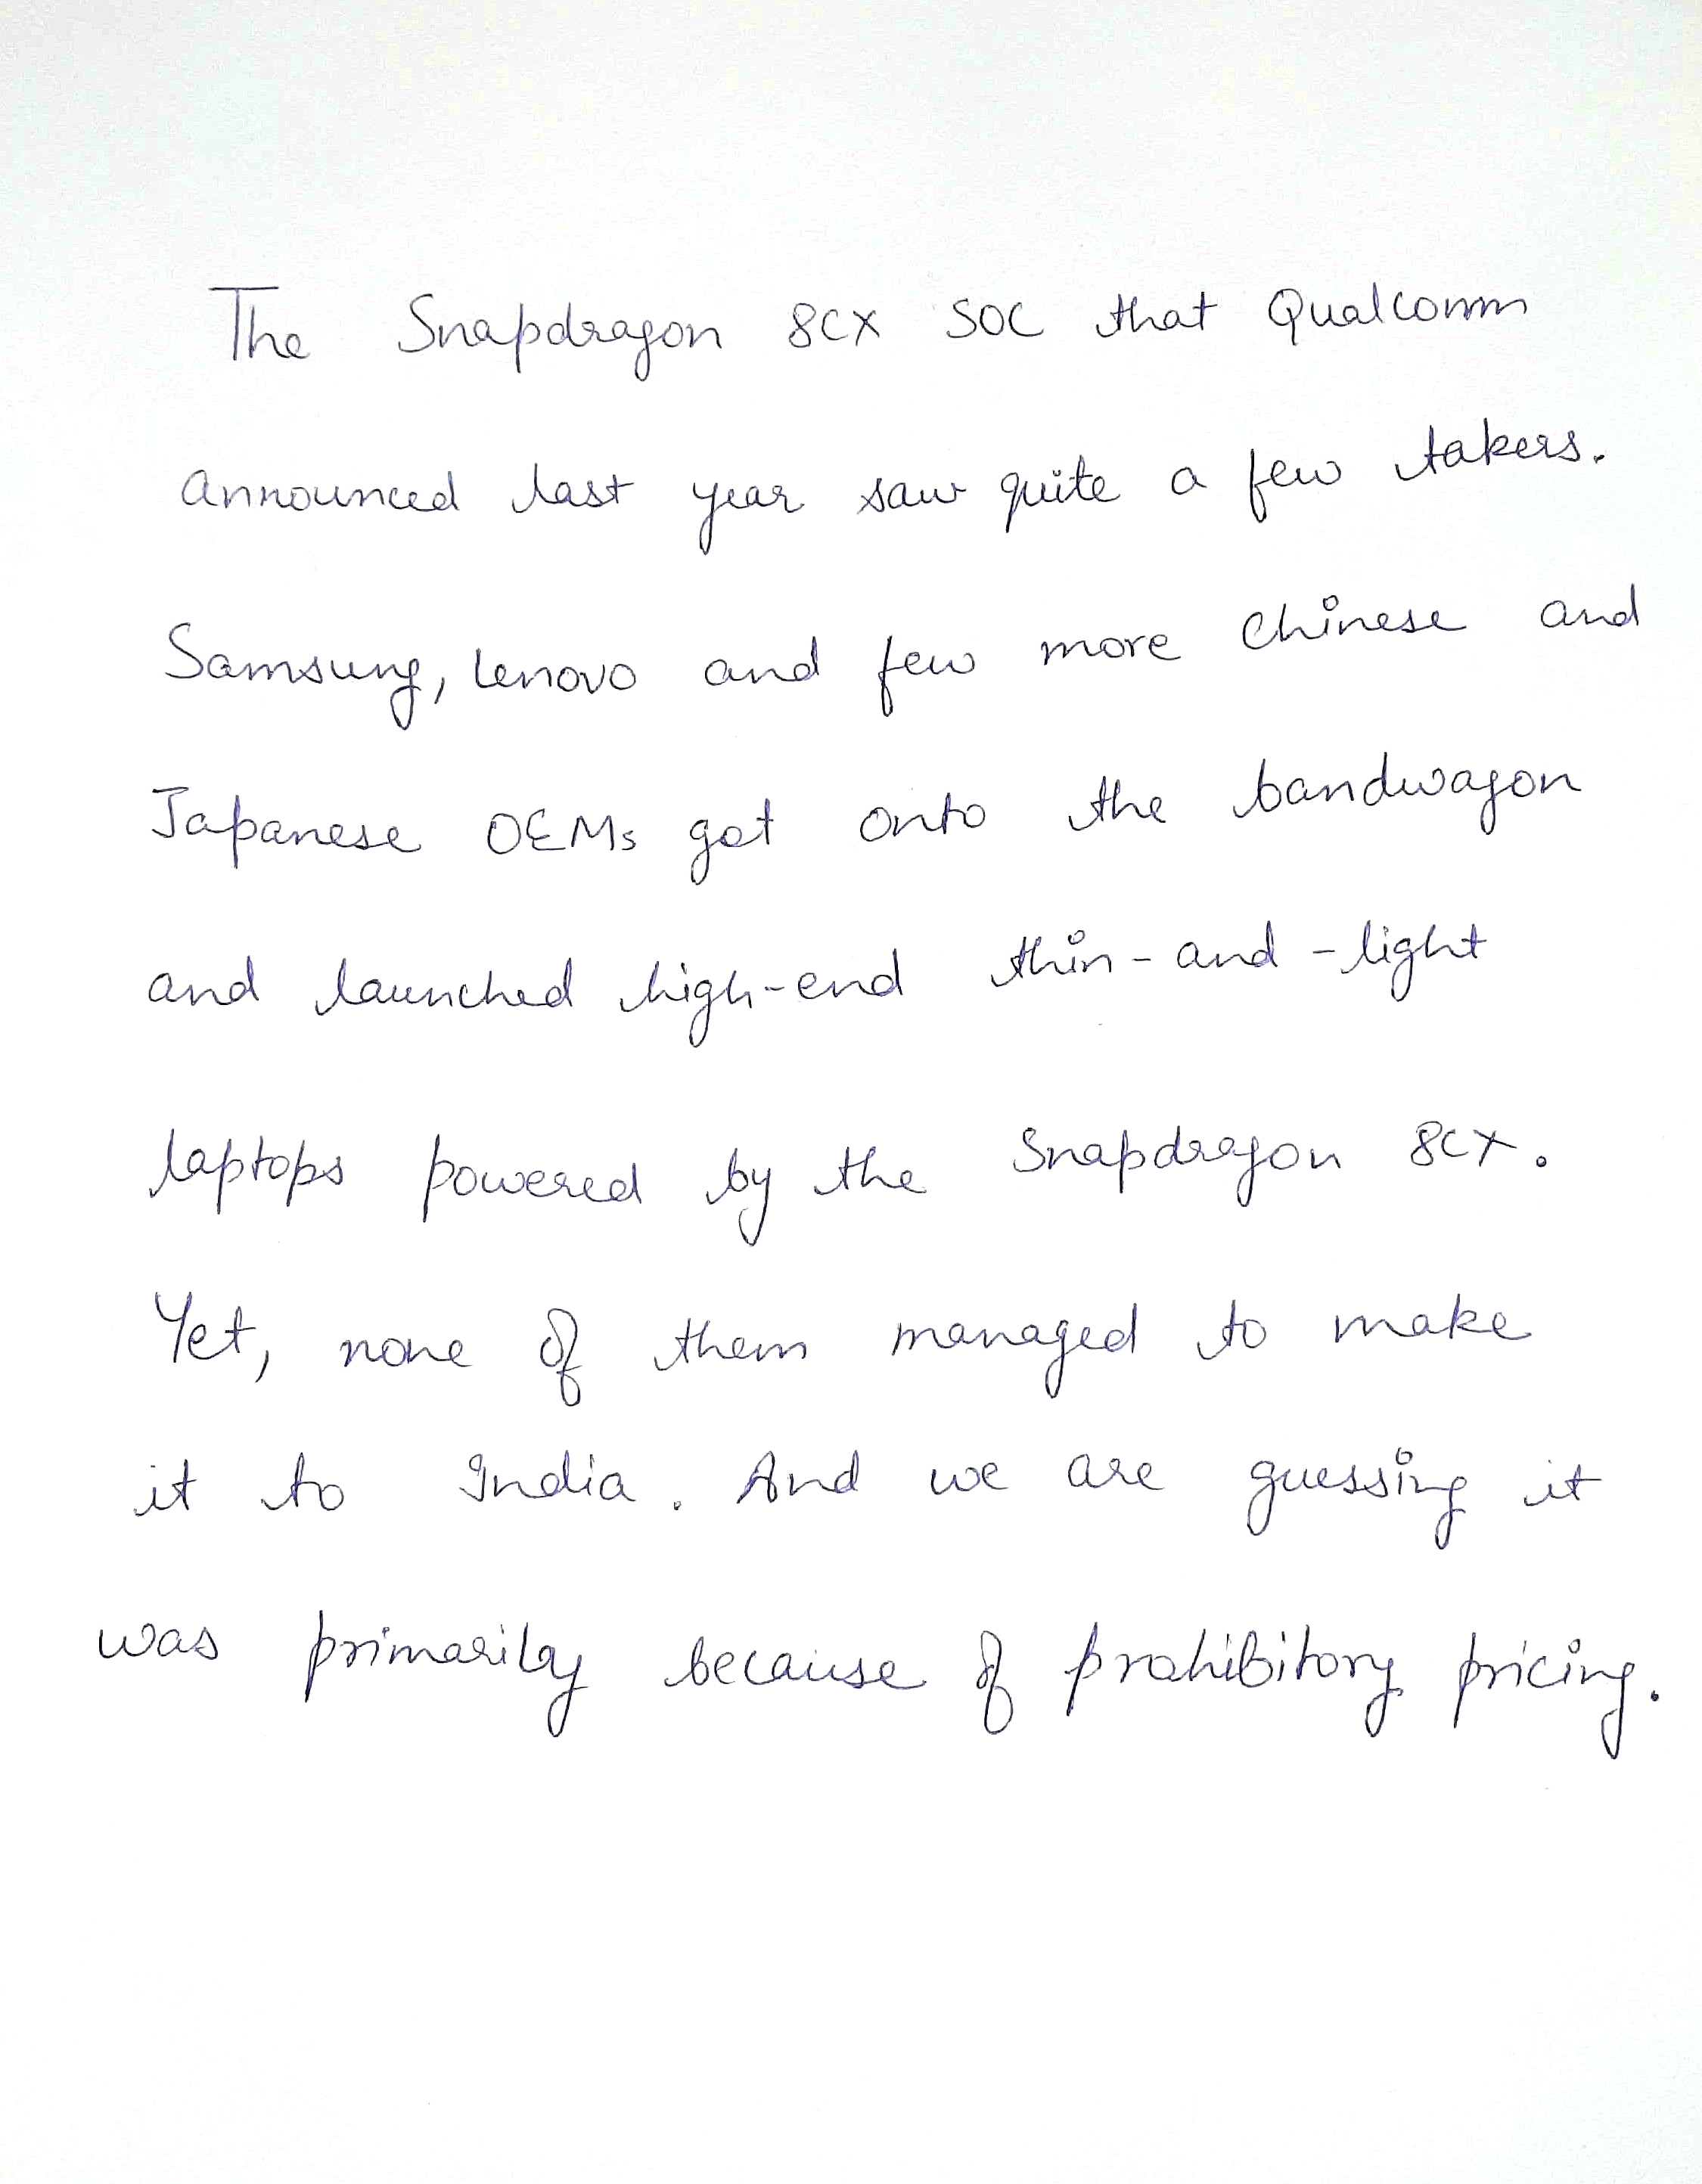 The Snapdragon 8CX SOC that Qualcomm
announced last year saw quite a few takers.
Samsung, Lenovo and few more Chinese and
Japanese OEMs got onto the bandwagon
and launched high-end thin-and-light
laptops powered by the Snapdragon 8CX.
Yet, none of them managed to make
it to India. And we are guessing it
was primarily because of prohibitory pricing.